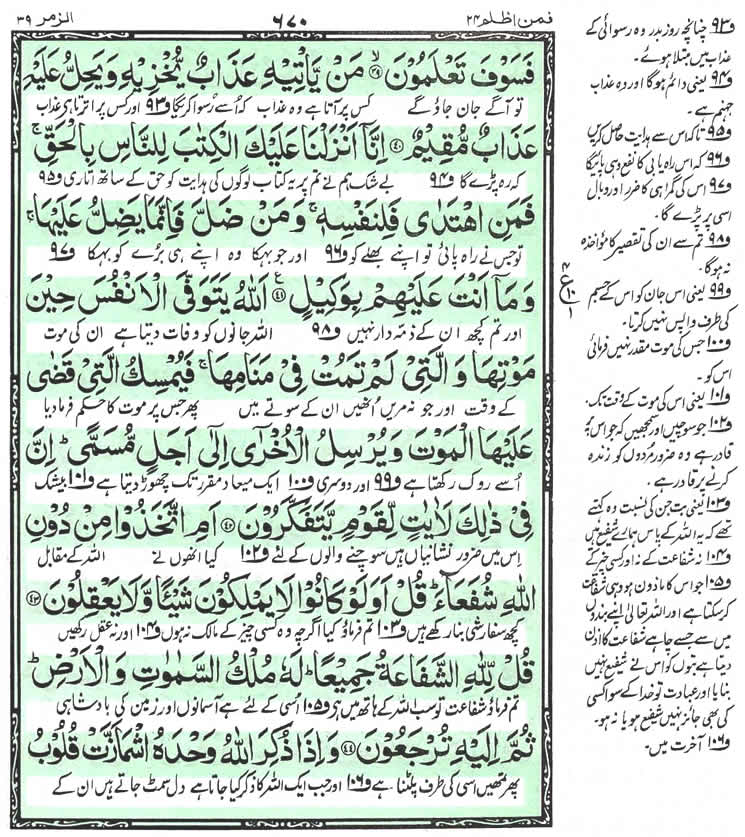 الزمر ٣٩
٦٧٠
فمن اظلم ٢٤
فَسَوْفَ تَعْلَمُوْنَ ﴿٣٩﴾ۙ مَنْ يَّاْتِيْهِ عَذَابٌ يُّخْزِيْهِ وَيَحِلُّ عَلَيْهِ
تو آگے جان جاؤ گے کس پر آتا ہے وہ عذاب کہ اُسے رُسوا کریگا و٩٣ اور کس پر اترتا ہی عذاب
عَذَابٌ مُّقِيْمٌ ﴿٤٠﴾ اِنَّاۤ اَنْزَلْنَا عَلَيْكَ الْكِتٰبَ لِلنَّاسِ بِالْحَقِّۚ
کہ رہ پڑے گا و٩٤ بے شک ہم نے تم پر یہ کتاب لوگوں کی ہدایت کو حق کے ساتھ اتاری و٩٥
فَمَنِ اهْتَدٰى فَلِنَفْسِهٖۚ وَمَنْ ضَلَّ فَاِنَّمَا يَضِلُّ عَلَيْهَاۚ
تو جس نے راہ پائی تو اپنے بھلے کو و٩٦ اور جو بہکا وہ اپنے ہی بُرے کو بہکا و٩٧
وَمَاۤ اَنْتَ عَلَيْهِمْ بِوَكِيْلٍ ﴿٤١﴾ اَللّٰهُ يَتَوَفَّى الْاَنْفُسَ حِيْنَ
اور تم کچھ ان کے ذمہ دار نہیں و٩٨ اللہ جانوں کو وفات دیتا ہے ان کی موت
مَوْتِهَا وَالَّتِيْ لَمْ تَمُتْ فِيْ مَنَامِهَاۚ فَيُمْسِكُ الَّتِيْ قَضٰى
کے وقت اور جو نہ مریں اُنھیں ان کے سوتے میں پھر جس پر موت کا حکم فرما دیا
عَلَيْهَا الْمَوْتَ وَيُرْسِلُ الْاُخْرٰۤى اِلٰۤى اَجَلٍ مُّسَمًّىؕ اِنَّ
اُسے روک رکھتا ہے و٩٩ اور دوسری و١٠٠ ایک میعاد مقرر تک چھوڑ دیتا ہے و١٠١ بیشک
فِيْ ذٰلِكَ لَاٰيٰتٍ لِّقَوْمٍ يَّتَفَكَّرُوْنَ ﴿٤٢﴾ اَمِ اتَّخَذُوْا مِنْ دُوْنِ
اِس میں ضرور نشانیاں ہیں سوچنے والوں کے لئے و١٠٢ کیا انھوں نے اللہ کے مقابل
اللّٰهِ شُفَعَآءَؕ قُلْ اَوَلَوْ كَانُوْا لَا يَمْلِكُوْنَ شَيْئًا وَّلَا يَعْقِلُوْنَ ﴿٤٣﴾
کچھ سفارشی بنا رکھے ہیں و١٠٣ تم فرماؤ کیا اگرچہ وہ کسی چیز کے مالک نہ ہوں و١٠٤ اور نہ عقل رکھیں
قُلْ لِّلّٰهِ الشَّفَاعَةُ جَمِيْعًاؕ لَهٗ مُلْكُ السَّمٰوٰتِ وَالْاَرْضِؕ
تم فرماؤ شفاعت تو سب اللہ کے ہاتھ میں ہی و١٠٥ اُسی کے لئے ہے آسمانوں اور زمین کی بادشاہی
ثُمَّ اِلَيْهِ تُرْجَعُوْنَ ﴿٤٤﴾ وَاِذَا ذُكِرَ اللّٰهُ وَحْدَهُ اشْمَاَزَّتْ قُلُوْبُ
پھر تمھیں اسی کی طرف پلٹنا ہے و١٠٦ اور جب ایک اللہ کا ذکر کیا جاتا ہے دل سمٹ جاتے ہیں ان کے
و٩٣ چنانچہ روز بدر وہ رسوائی کے
عذاب میں مبتلا ہوئے۔
و٩٤ یعنی دائم ہوگا اور وہ عذاب
جہنم ہے۔
و٩٥ تاکہ اس سے ہدایت حاصل کریں
و٩٦ کہ اس راہ یابی کا نفع وہی پائیگا
و٩٧ اس کی گمراہی کا ضرر اور وبال
اسی پر پڑے گا۔
و٩٨ تم سے ان کی تقصیر کا مؤاخذہ
نہ ہوگا۔
و٩٩ یعنی اس جان کو اس کے جسم
کی طرف واپس نہیں کرتا۔
و١٠٠ جس کی موت مقدر نہیں فرمائی
اس کو۔
و١٠١ یعنی اس کی موت کے وقت تک۔
و١٠٢ جو سوچیں اور سمجھیں کہ جو اس پر
قادر ہے وہ ضرور مردوں کو زندہ
کرنے پر قادر ہے۔
و١٠٣ یعنی بت جن کی نسبت وہ کہتے
تھے کہ یہ اللہ کے پاس ہمارے شفیع ہیں
و١٠٤ نہ شفاعت کے نہ اور کسی چیز کے
و١٠٥ جو اس کا ماذون ہو وہی شفاعت
کر سکتا ہے اور اللہ تعالیٰ اپنے بندوں
میں سے جسے چاہے شفاعت کا اذن
دیتا ہے بتوں کو اس نے شفیع نہیں
بنایا اور عبادت تو خدا کے سوا کسی
کی بھی جائز نہیں شفیع ہو یا نہ ہو۔
و١٠٦ آخرت میں۔
٤
ع
١٠
١